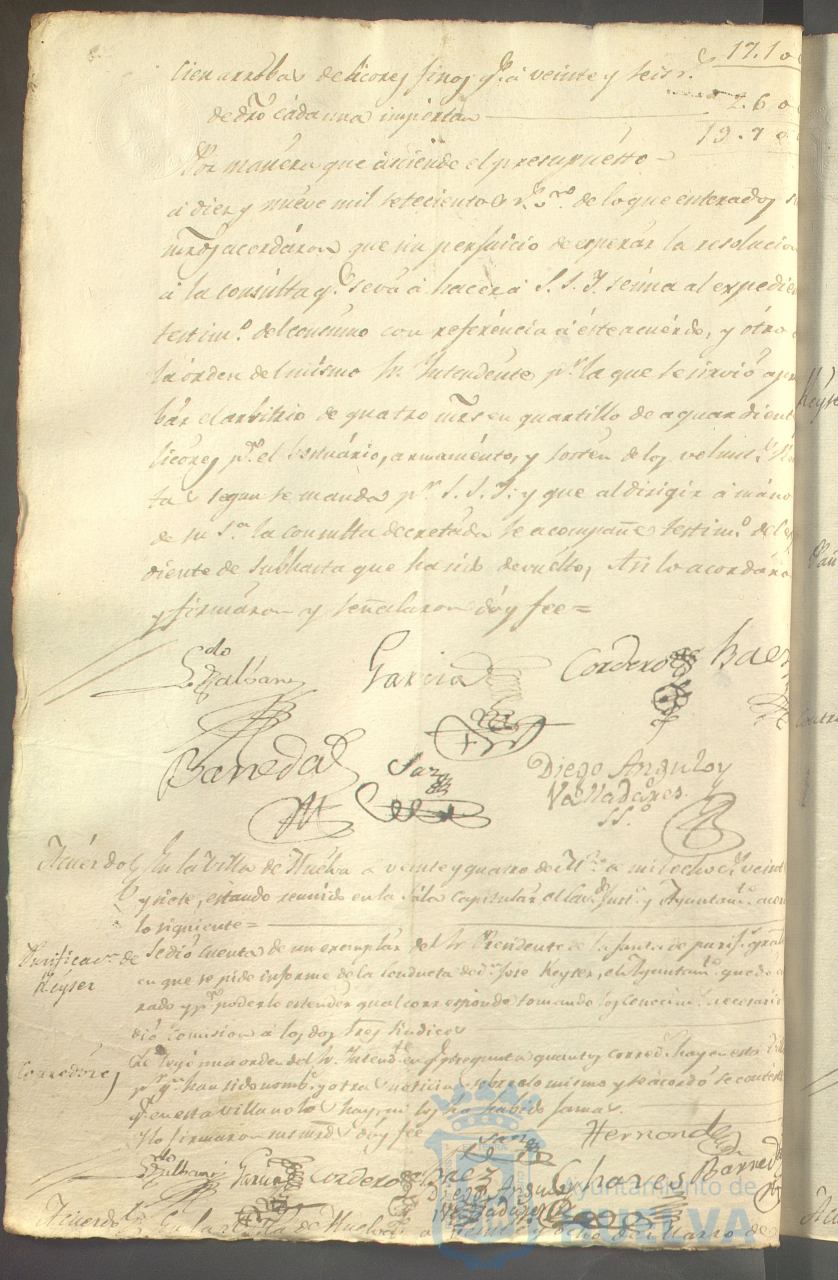 17.10
Cien arrobas de licores finos q.e á veinte y seis r.s
de dro cada una importan 2.60
19.70
Por manera que asciende el presupuesto
á diez y nueve mil setecientos r.s v.n de lo que enterados
mrds acordáron que sin perjuicio de esperar la resolucion
á la consulta q.e se vá á hacer á S. S. Y. se úna al expedien
testim.o del consumo con referéncia á éste acuérdo, y ótro
la órden del mismo Sr. Yntendente p.r la que se sirvió apro
bár el arbitrio de quatro mrs en quartillo de aguardient
licóres p.a el Vestuário, armaménto, y sosten de los volunt.s
segun se manda p.r S. S. Y. y que al dirigir á mános
de su S.a la consulta decretáda se acompañe testim.o del
diente de subhasta que ha sido devuélto, Asi lo acordáro
y firmáron y señalaron dóy fee =
L.do Galbán
Garcia
Cordero
Baez
Barreda
Saz
Diego Angulo y
Valladares
SS.o
Acuérdo En la Villa de Huélva á veinte y quatro de M.zo de mil ocho c.s veint
y siete, estando reunido en la Sála Capitulár el Cav.do Just.a y Ayuntam.to
lo siguiente =
Purificac.n de Keyser
Se dió cuenta de un exemplár del Sr. Presidente de la Junta de purif.n
en que se pide informe de la conducta de D.n José Keyser, el Ayuntam.to quedó
rado y p.a poderlo estender qual corresponde tomando los conocim.s necesario
dió comision á los dos Sres Sindicos
Corredóres
Se leyó una orden del Sr. Intend.te en q.e pregunta quantos corred.s hay en esta Villa
p.r q.n han sido nomb.s y otras noticias sobre lo mismo y se acordó se conteste
q.e en esta villa no los hay, ni los ha habido jamas.
Y lo firmaron sus mrds dóy fee
Saz
Hernandez
L.do Galban
Garcia
Cordero
Baez
Diego Angulo
Valladares
Chares
Barreda
Acuérdo En la Villa de Huélva á veinte y ocho de Marzo de
Ayuntamiento de
HUELVA
Keyser